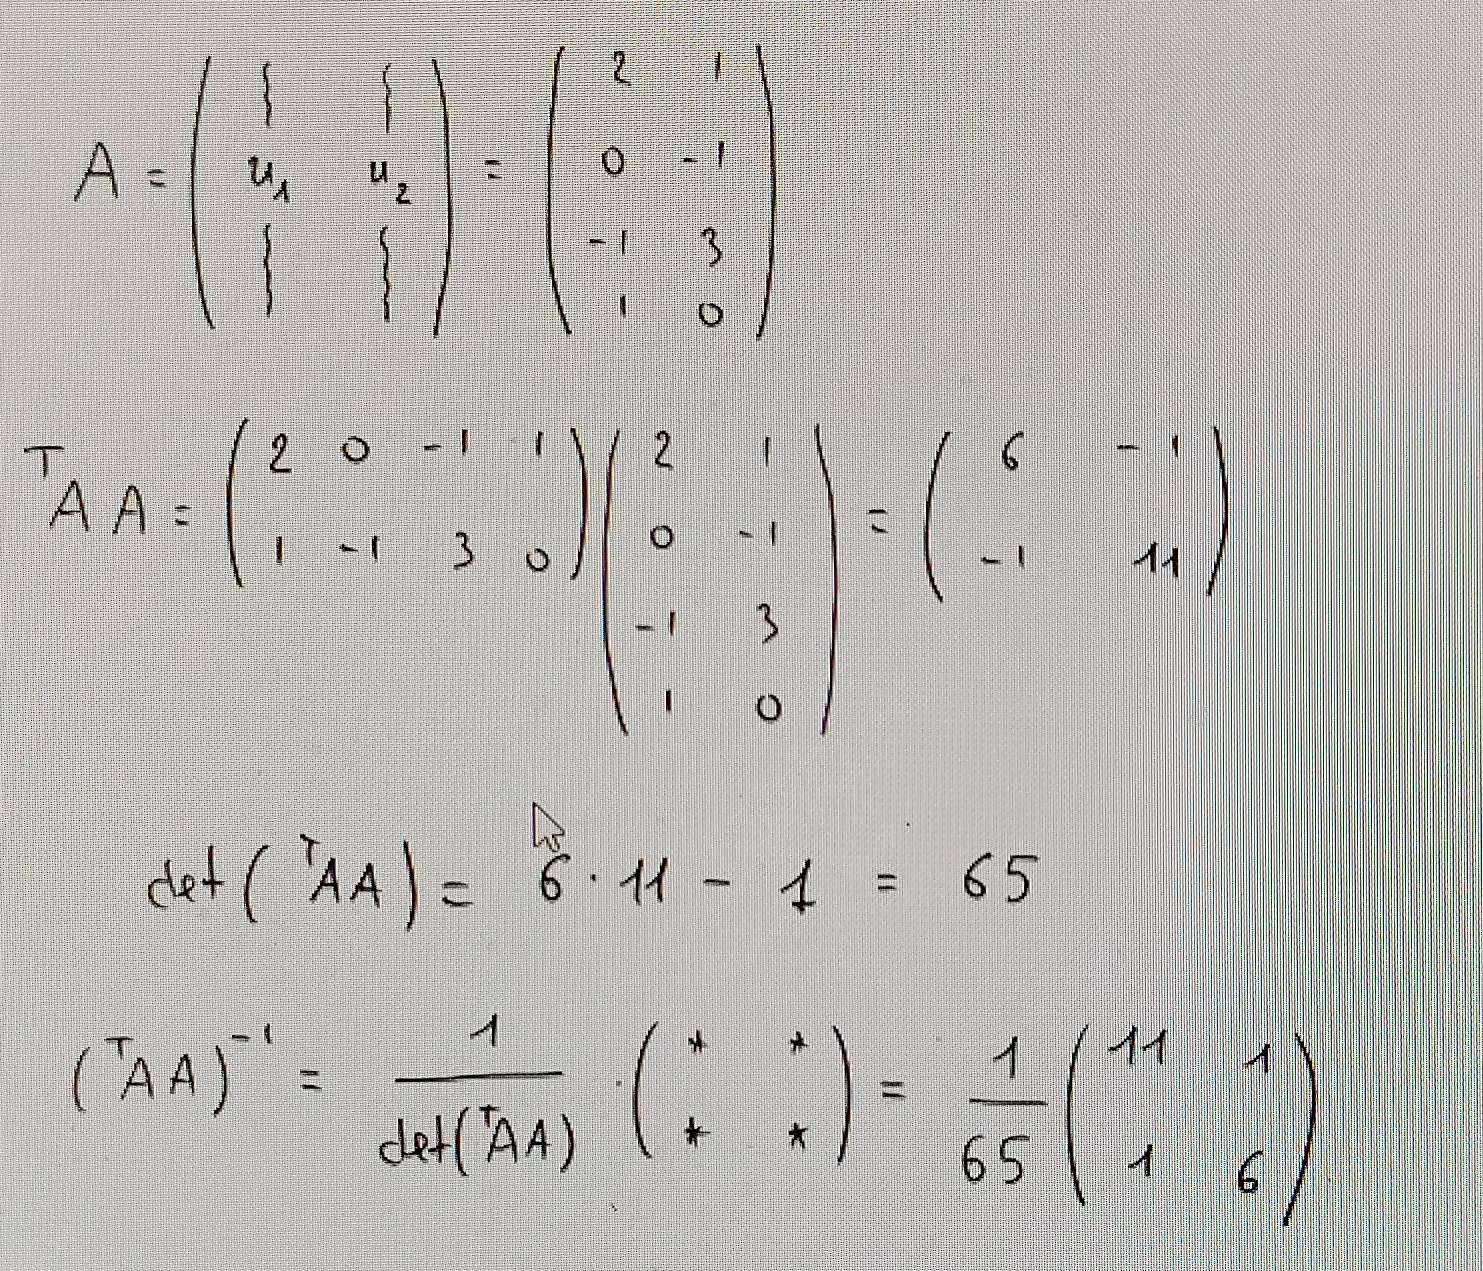 A = ( u₁ u₂ ) = ( 2 1 ; 0 -1 ; -1 3 ; 1 0 )
ᵀA A = ( 2 0 -1 1 ; 1 -1 3 0 ) ( 2 1 ; 0 -1 ; -1 3 ; 1 0 ) = ( 6 -1 ; -1 11 )
det ( ᵀAA ) = 6 · 11 - 1 = 65
( ᵀAA )⁻¹ = 1 / det(ᵀAA) · ( * * ; * * ) = 1 / 65 ( 11 1 ; 1 6 )